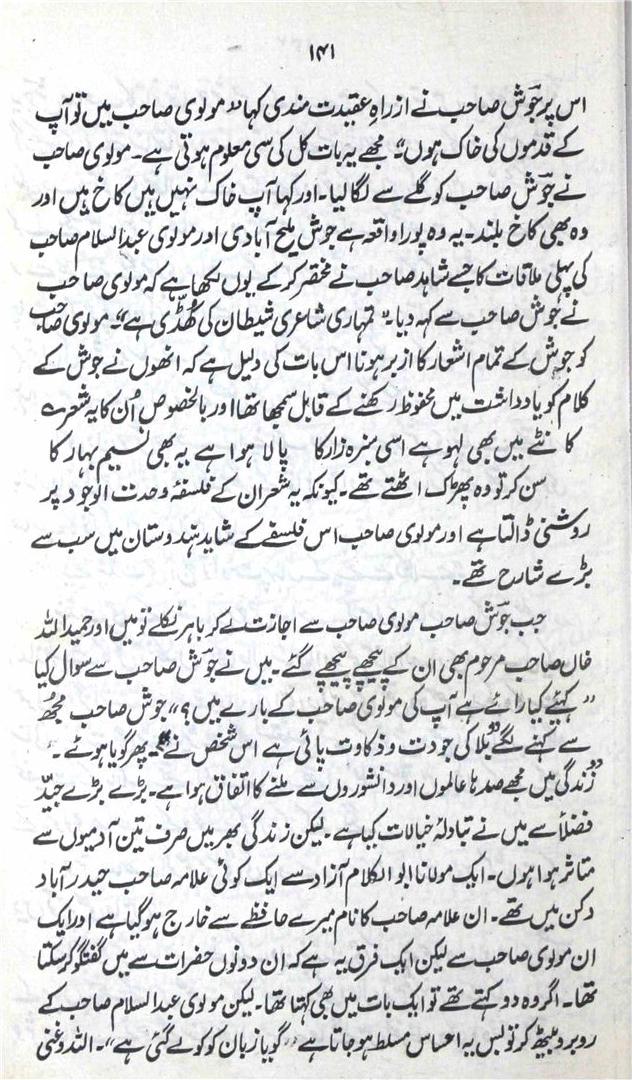 ۱۴۱
اس پر جوشؔ صاحب نے از راہِ عقیدت مندی کہا ”مولوی صاحب میں تو آپ
کے قدموں کی خاک ہوں“۔ مجھے یہ بات کل کی سی معلوم ہوتی ہے۔ مولوی صاحب
نے جوشؔ صاحب کو گلے سے لگا لیا۔ اور کہا آپ خاک نہیں ہیں کاخ ہیں اور
وہ بھی کاخ بلند۔ یہ وہ پورا واقعہ ہے جوش ملیح آبادی اور مولوی عبدالسلام صاحب
کی پہلی ملاقات کا جسے شاہد صاحب نے مختصر کر کے یوں لکھا ہے کہ مولوی صاحب
نے جوش صاحب سے کہہ دیا۔ ”تمہاری شاعری شیطان کی کُھڈّی ہے“۔ مولوی صاحب
کو جوش کے تمام اشعار کا ازبر ہونا اس بات کی دلیل ہے کہ انھوں نے جوش کے
کلام کو یادداشت میں محفوظ رکھنے کے قابل سمجھا تھا اور بالخصوص اُن کا یہ شعر ؎
کانٹے میں بھی لہو ہے اسی سبزہ زار کا پالا ہوا ہے یہ بھی نسیم بہار کا
سن کر تو وہ پھڑک اٹھتے تھے۔ کیونکہ یہ شعر ان کے فلسفۂ وحدت الوجود پر
روشنی ڈالتا ہے اور مولوی صاحب اس فلسفے کے شاید ہندوستان میں سب سے
بڑے شارح تھے۔
جب جوشؔ صاحب مولوی صاحب سے اجازت لے کر باہر نکلے تو میں اور حمید اللہ
خاں صاحب مرحوم بھی ان کے پیچھے پیچھے گئے۔ میں نے جوشؔ صاحب سے سوال کیا
”کہئے کیا رائے ہے آپ کی مولوی صاحب کے بارے میں؟“ جوش صاحب مجھ
سے کہنے لگے ”بلا کی جودت و ذکاوت پائی ہے اس شخص نے“۔ پھر گویا ہوئے۔
”زندگی میں مجھے صدہا عالموں اور دانشوروں سے ملنے کا اتفاق ہوا ہے۔ بڑے بڑے جیّد
فضلاء سے میں نے تبادلۂ خیالات کیا ہے۔ لیکن زندگی بھر میں صرف تین آدمیوں سے
متاثر ہوا ہوں۔ ایک مولانا ابوالکلام آزاد سے ایک کوئی علامہ صاحب حیدرآباد
دکن میں تھے۔ ان علامہ صاحب کا نام میرے حافظے سے خارج ہو گیا ہے اور ایک
ان مولوی صاحب سے لیکن ایک فرق یہ ہے کہ ان دونوں حضرات سے میں گفتگو کر سکتا
تھا۔ اگر وہ دو کہتے تھے تو ایک بات میں بھی کہتا تھا۔ لیکن مولوی عبدالسلام صاحب کے
روبرو بیٹھ کر تو بس یہ احساس مسلط ہو جاتا ہے ”گویا زبان کوکولے گئی ہے“۔ اللہ و غنی